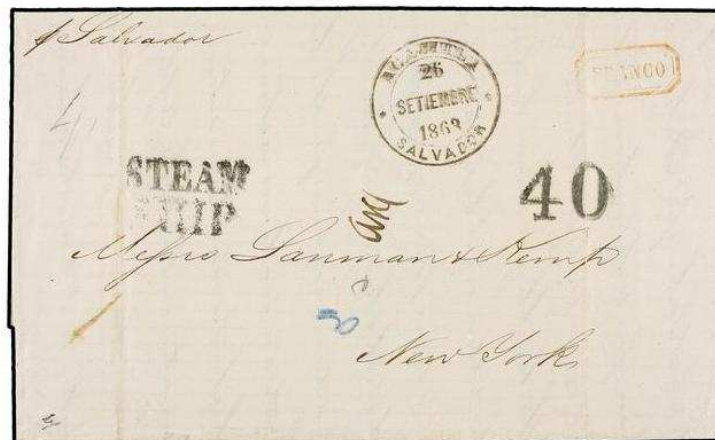 p Salvador
ACAJUTLA
25
SETIEMBRE
1863
SALVADOR
FRANCO
4
STEAM
SHIP
40
Messrs Lanman & Kemp
New York